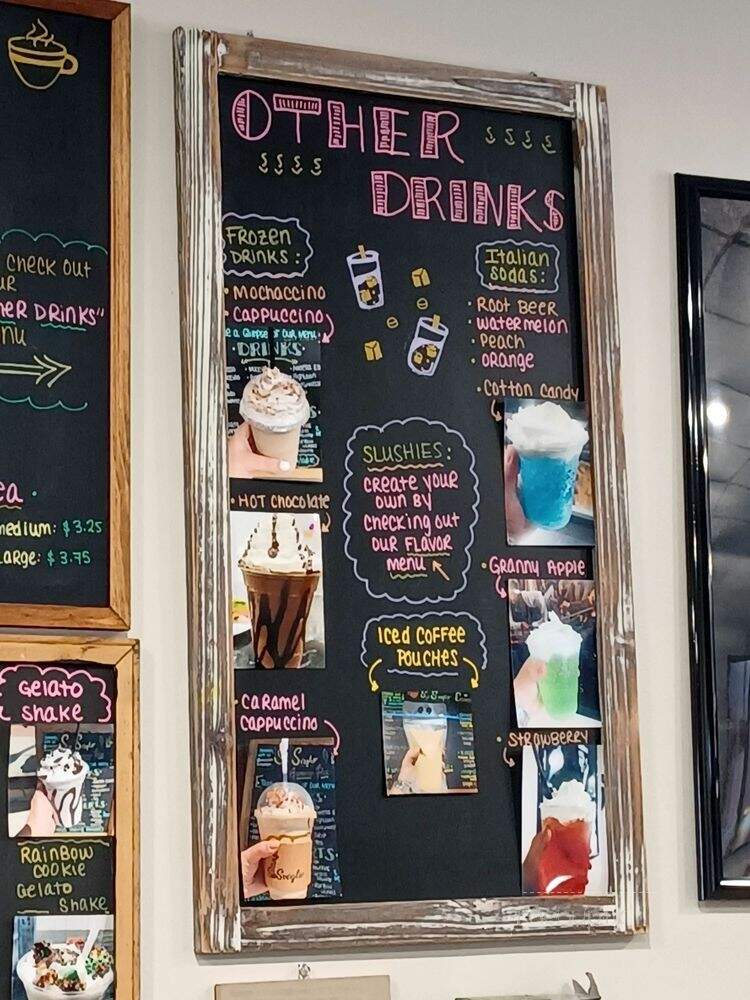 Check out
"
DRINKS"
medium: $3.25
Large: $3.75
Gelato
Shake
RainBow
Cookie
Gelato
Shake
OTHER
DRINKS
Frozen
DRINKS:
• Mochaccino
• Cappuccino
DRINKS
• HOT Chocolate
• Caramel
Cappuccino
SLUSHIES:
Create your
own by
Checking out
our FLAVOR
menu
Iced Coffee
Pouches
Italian
Sodas:
• Root Beer
• watermelon
• Peach
• orange
• Cotton Candy
• Granny Apple
• Strawberry